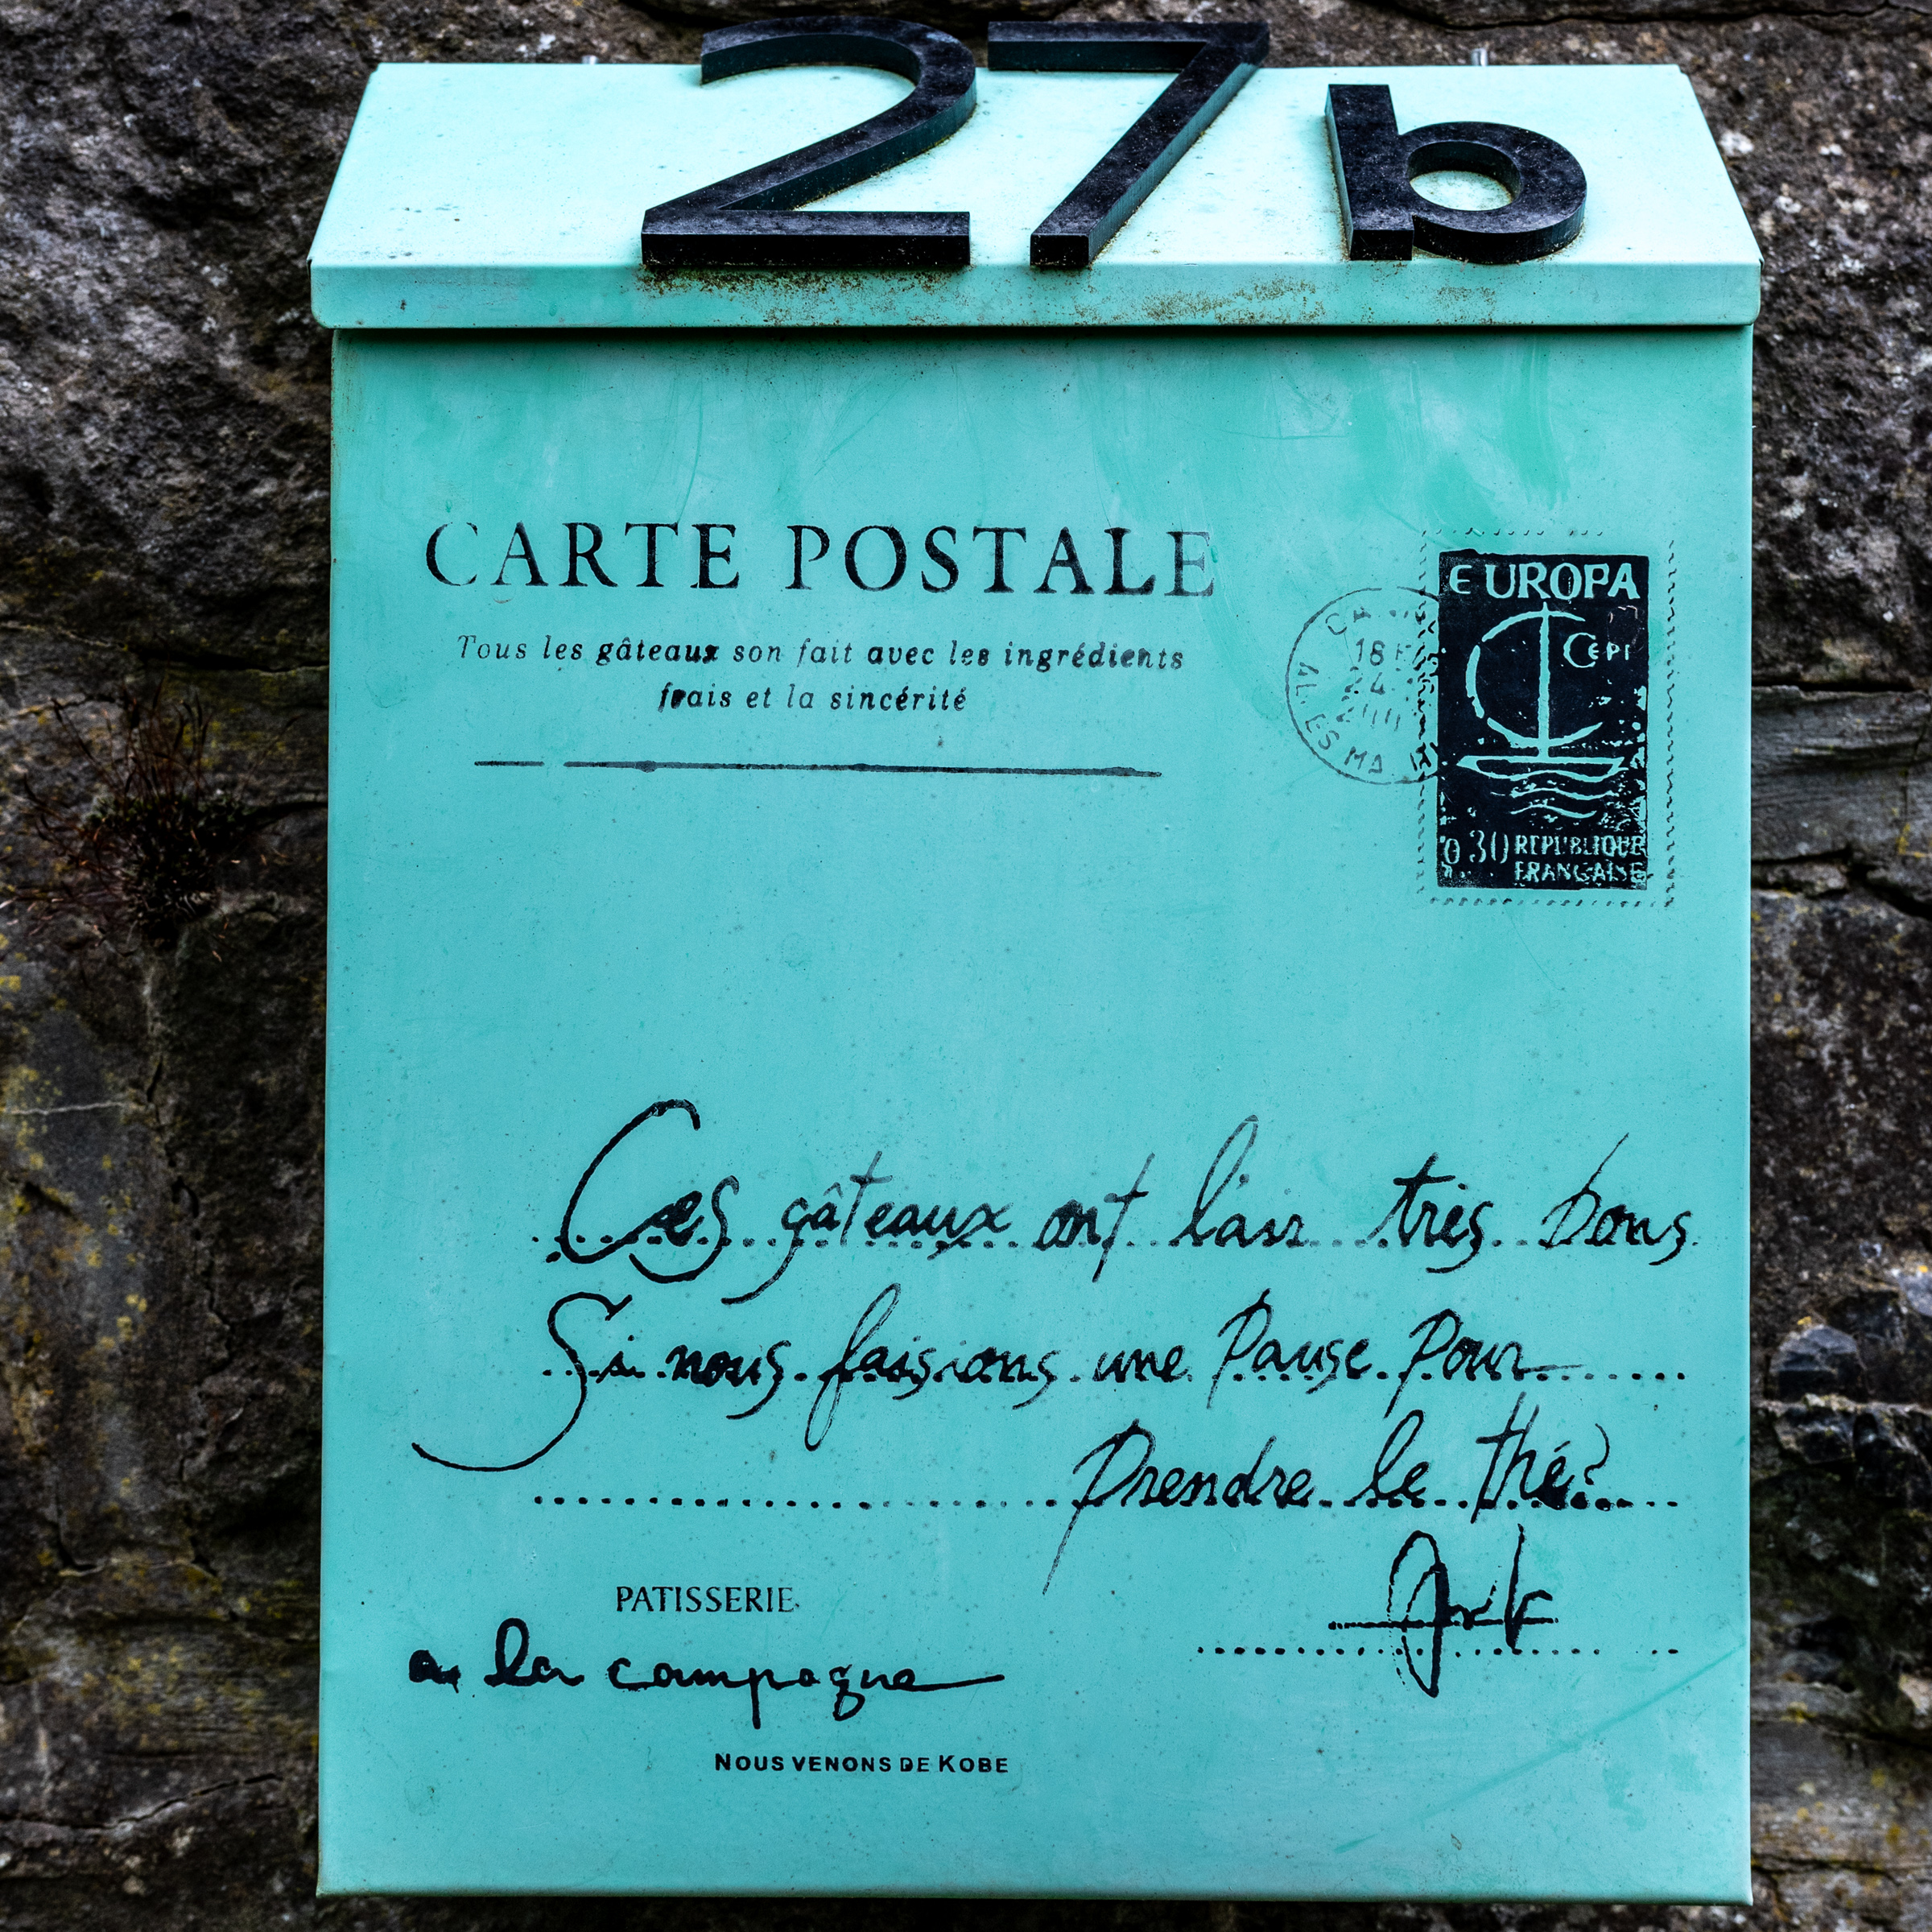 27b
CARTE POSTALE
Tous les gâteaux son fait avec les ingrédients
frais et la sincérité
EUROPA
CEPT
18
4
ES MA
0.30 REPUBLIQUE
FRANÇAISE
Ces gâteaux ont l'air très bons.
Si nous faisions une Pause Pour
Prendre le thé?
PATISSERIE
a la campagne
NOUS VENONS DE KOBE